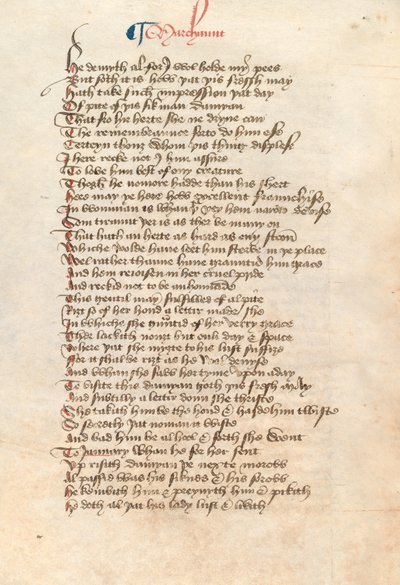 ¶ Marchaunt
He demyth al for I wol holde my pees
But soth it is how þat þis fressh may
Hath take such impression þat day
Of pite of þis sikman Damyan
That fro hir herte she ne dryve can
The remembraunce forto do him ese
Certeyn thouȝ whom þis thing displese
I here recke not I him assure
To love him best of ony creature
Thogh he nomore hadde than his shert
Heer may ye here how excellent Franchise
In womman is whan þey hem narow devise
Som tiraunt þer is as ther be many on
That hath an herte as hard as eny ston
Whiche wolde have leet him sterve in þe place
Wel rather thanne have grauntid him grace
And hem reioisen in her cruel pride
And reckid not to be an homicide
This gentil may fulfilled of al pite
Riȝt of her hond a lettre make she
In whiche she grauntid hey verry grace
Ther lackith nouȝt but onli day & space
Where þat she myȝte to his lust suffize
For it shal be riȝt as he wol devise
And whan she saw her tyme upon a day
To visite this damyan goth þis fresh may
And subtilly a letter doun she thriste
She takith him be the hond & harde him twiste
So secretly þat noman it wiste
And bad him be al hool & forth she went
To January whan he for her sent
Up risith damyan þe nexte morow
Al passid was his siknes & his sorow
He kembith him & preyneth him & pikith
He doth al þat his lady lust & likith